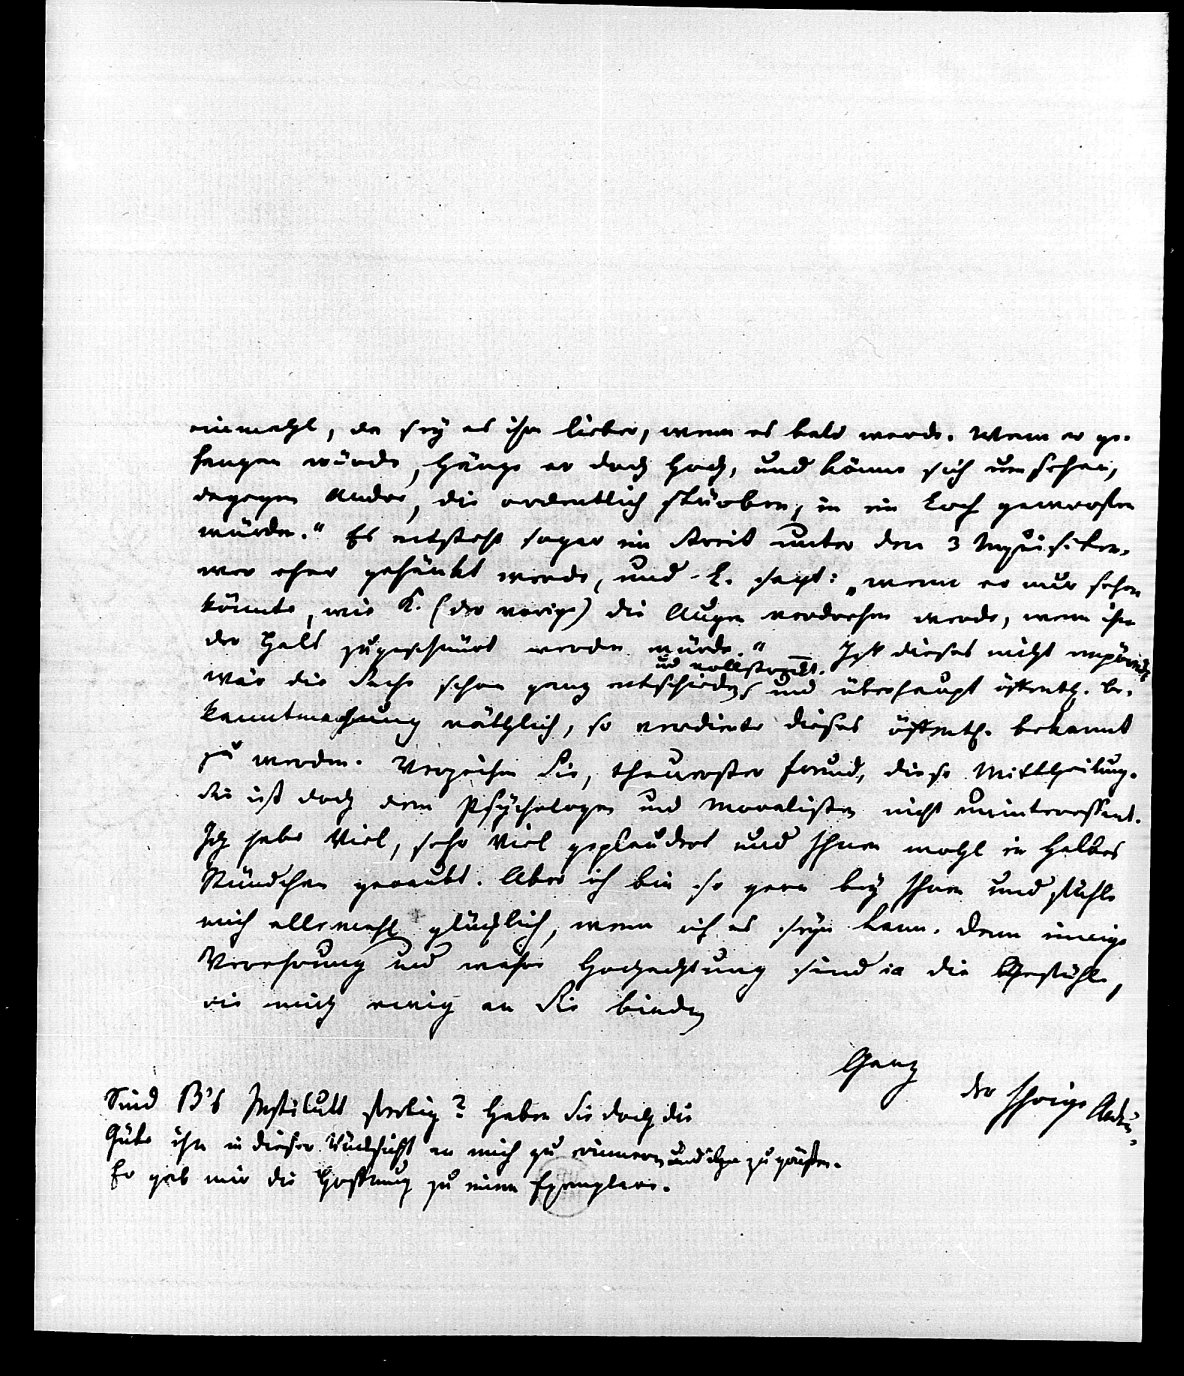 einmahl, da sey es ihm lieber, wenn es bald werde. Wenn er ge-
hangen würde, hänge er doch hoch, und könne sich umsehen,
dagegen Andre, die ordentlich stürben, in ein Loch geworfen
würden." Es entsteht sogar ein Streit unter den 3 Inquisiten,
wer eher gehänkt werde, und L. sagt: „wenn er nur sehen
könnte, wie K. (der vorige) die Augen verdrehen werde, wenn ihm
der Hals zugeschnürt werden würde." Ist dieses nicht empörend
und vollstreckt.
wär die Sache schon ganz entschieden und überhaupt öffentl. Be-
kanntmachung räthlich, so verdiente dieses öffentl. bekannt
zu werden. Verzeihen Sie, theuerster Freund, diese Mittheilung.
Sie ist doch dem Psychologen und Moralisten nicht uninteressant.
Ich habe Viel, sehr Viel geplaudert und Ihnen wohl ein halbes
Stündchen geraubt. Aber ich bin so gern bey Ihnen und fühle
mich allemahl glücklich, wenn ich es seyn kann. Denn innige
Verehrung und wahre Hochachtung sind ia die Gefühle,
die mich ewig an Sie binden
Ganz
der Ihrige
Sind B's Institutt fertig? Haben Sie doch die
Güte ihn in dieser Rücksicht an mich zu erinnern und ihn zu grüßen.
Er gab mir die Hoffnung zu einem Exemplare.